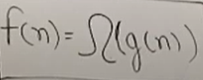 f(n) = Ω(g(n))